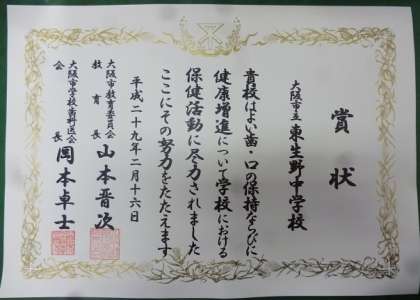 賞状
大阪市立 東生野中学校
貴校はよい歯・口の保持ならびに
健康増進について学校における
保健活動に尽力されました
ここにその努力をたたえます
平成二十九年二月十六日
大阪市教育委員会
教育長 山本晋次
大阪市学校歯科医会
会長 岡本卓士